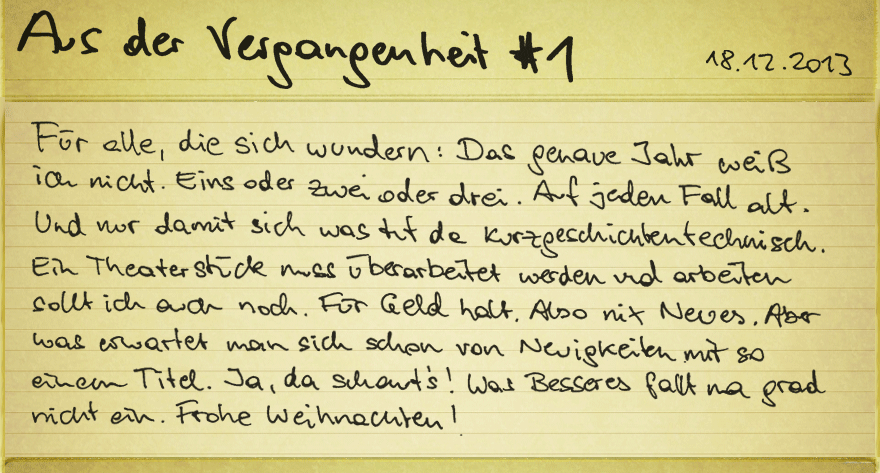 Aus der Vergangenheit #1
18.12.2013
Für alle, die sich wundern: Das genaue Jahr weiß
ich nicht. Eins oder zwei oder drei. Auf jeden Fall alt.
Und nur damit sich was tut da kurzgeschichtentechnisch.
Ein Theaterstück muss überarbeitet werden und arbeiten
sollt ich auch noch. Für Geld halt. Also nix Neues. Aber
was erwartet man sich schon von Neuigkeiten mit so
einem Titel. Ja, da schaut's! Was Besseres fällt ma grad
nicht ein. Frohe Weihnachten!